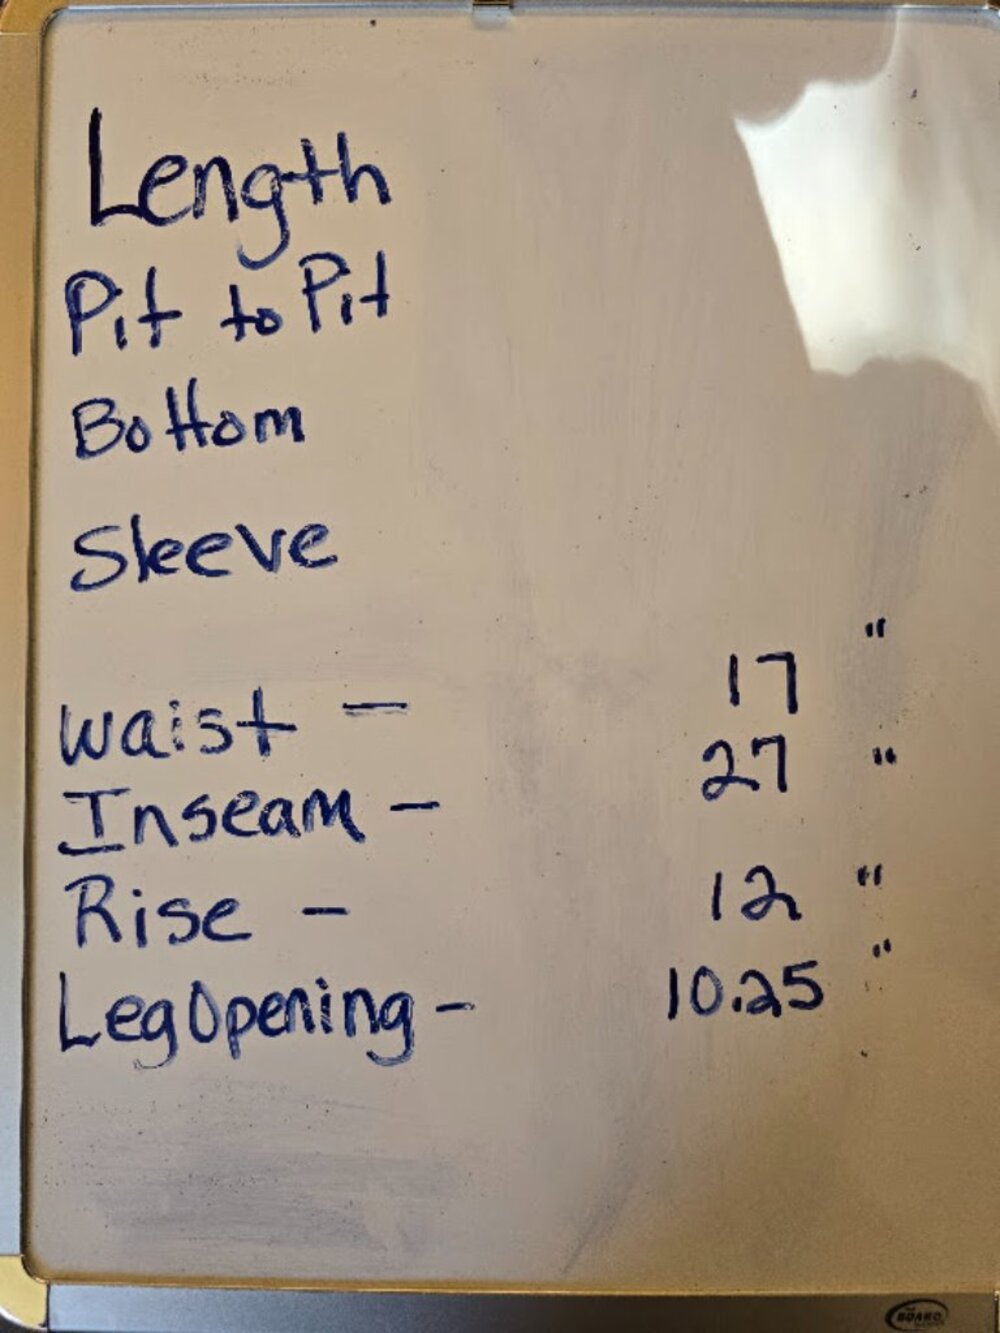 Length
Pit to Pit
Bottom
Sleeve
Waist - 17"
Inseam - 27"
Rise - 12"
Leg Opening - 10.25"
BOARD